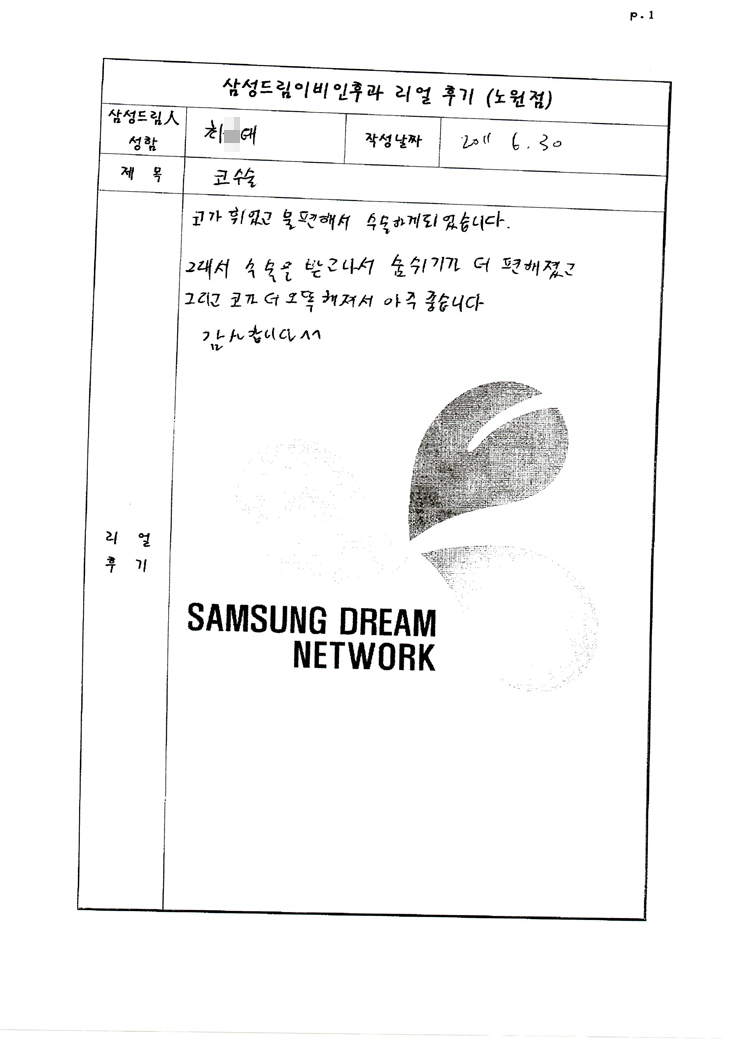 p.1
삼성드림이비인후과 리얼 후기 (노원점)
삼성드림人 성함
최 태
작성날짜
2011 6.30
제 목
코수술
코가 휘었고 불편해서 수술하게되었습니다.
그래서 수술을 받고나서 숨쉬기가 더 편해졌고
그리고 코가 더 오똑해져서 아주 좋습니다
감사합니다^^
리 얼
후 기
SAMSUNG DREAM
NETWORK